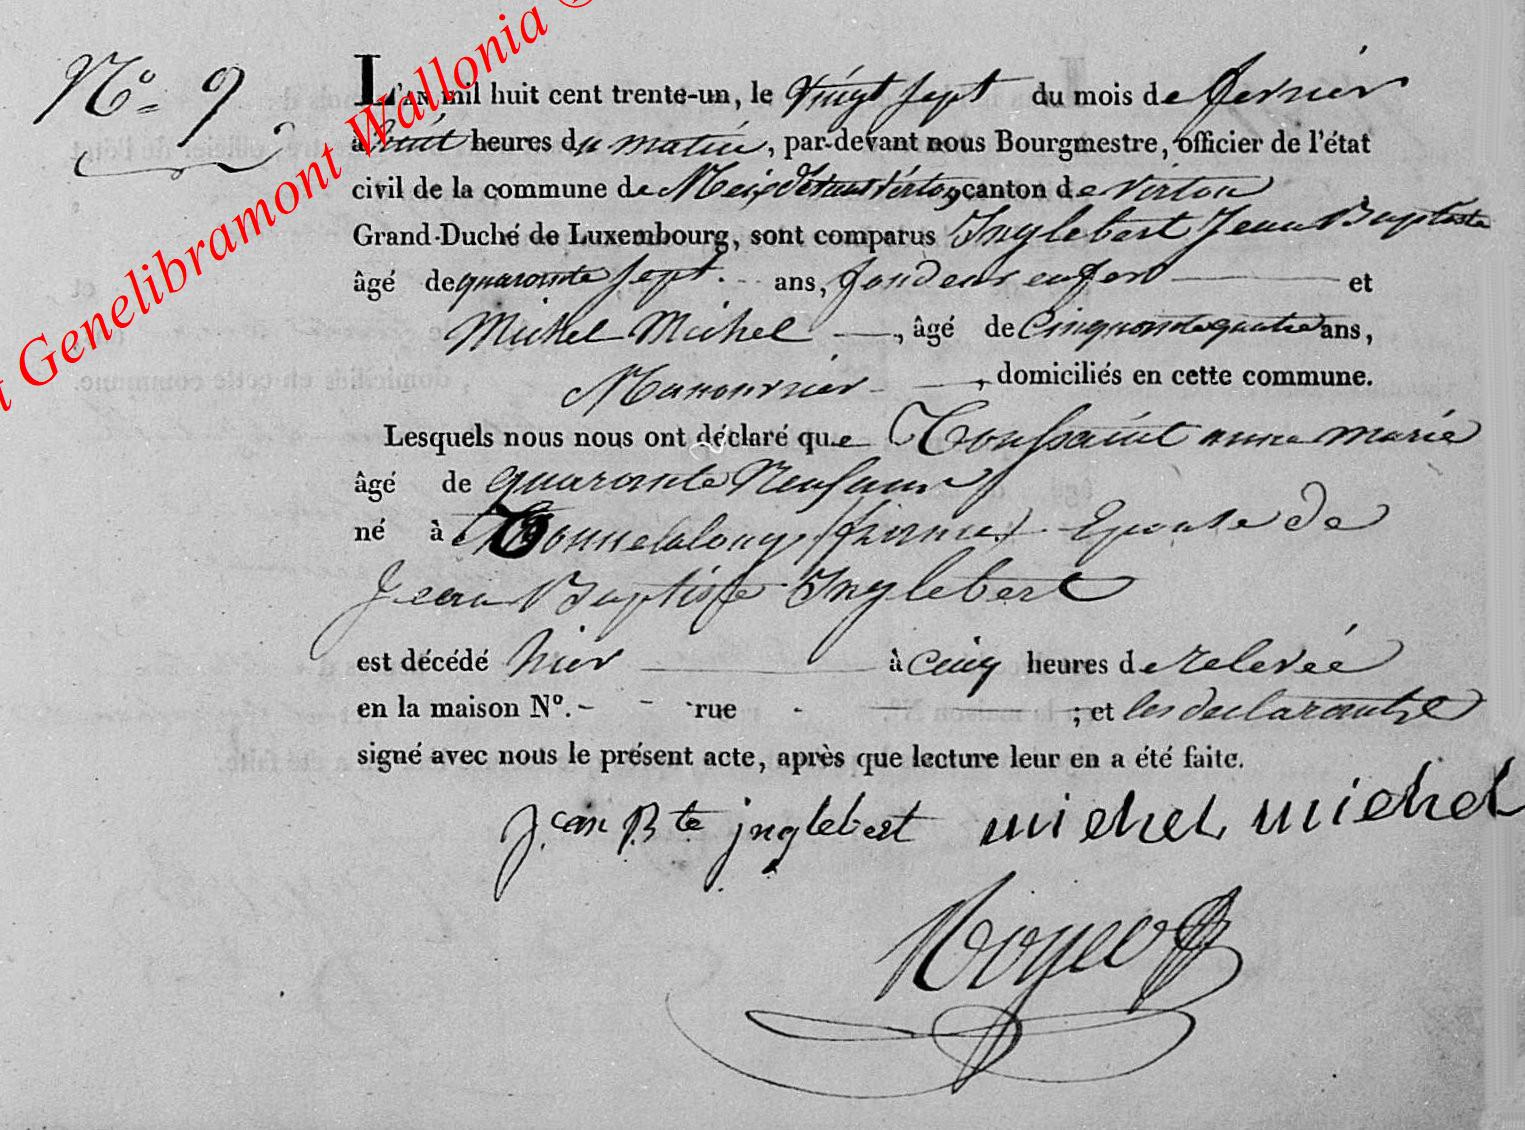 Genelibramont Wallonia ©
N.o 9
L'AN mil huit cent trente-un, le vingt sept du mois de fevrier
à huit heures du matin, par-devant nous Bourgmestre, officier de l'état
civil de la commune de Meix devant Virton, canton de virton
Grand-Duché de Luxembourg, sont comparus Inglebert Jean Baptiste
âgé de quarante sept ans, fondeur en fer et
Michel Michel, âgé de Cinquante quatre ans,
Manouvrier, domiciliés en cette commune.
Lesquels nous nous ont déclaré que Toussaint anne marie
âgé de quarante Neuf ans
né à Tonnelalong (france) Epouse de
Jean Baptiste Inglebert
est décédé hier à cinq heures de relevée
en la maison No. - - rue - ; et les declarants
signé avec nous le présent acte, après que lecture leur en a été faite.
Jean Bte jnglebert michel michel